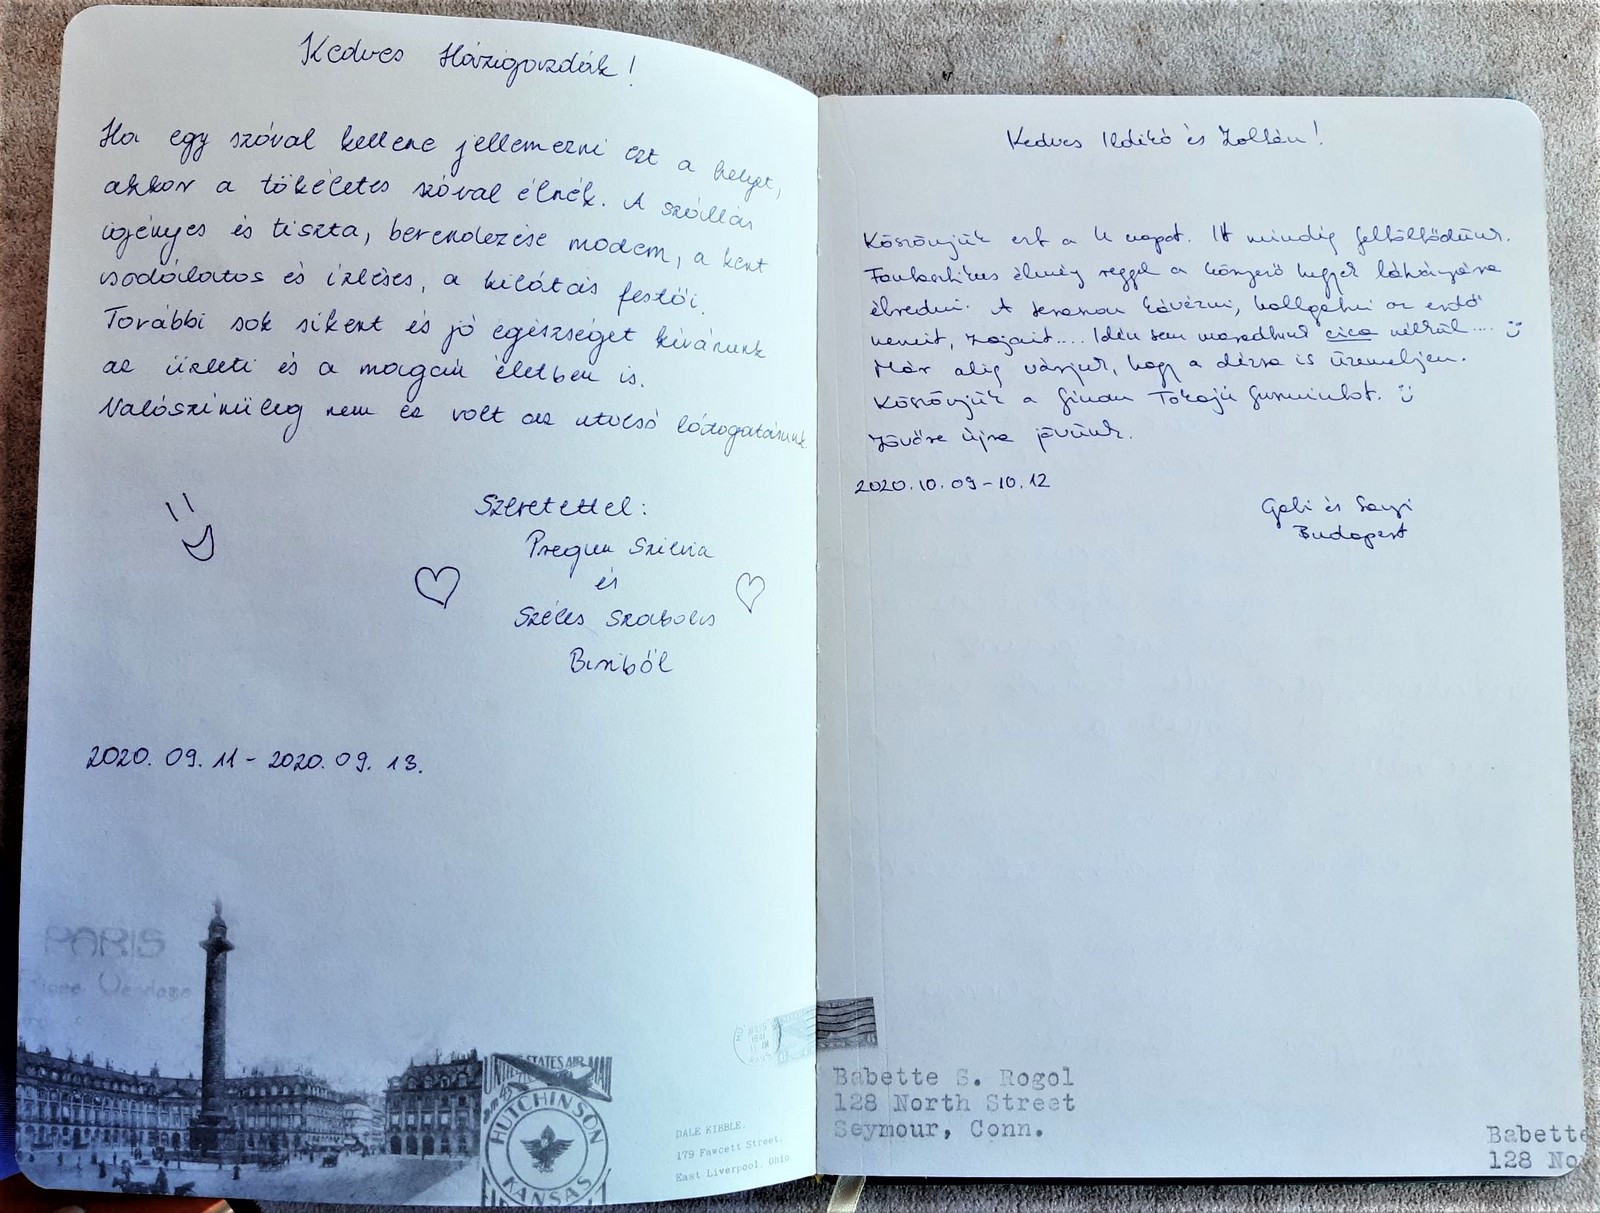 Kedves Házigazdák!
Ha egy szóval kellene jellemezni ezt a helyet,
akkor a tökéletes szóval élnék. A szállás
igényes és tiszta, berendezése modern, a kert
csodálatos és ízléses, a kilátás festői.
További sok sikert és jó egészséget kívánunk
az üzleti és a magán életben is.
Valószínűleg nem ez volt az utolsó látogatásunk.
Szeretettel:
Pregun Szilvia
és
Széles Szabolcs
2020. 09. 11 - 2020. 09. 13.
PARIS
Place Vendome
UNITED STATES AIR MAIL
HUTCHINSON
KANSAS
DALE KIBBLE.
179 Fawcett Street,
East Liverpool, Ohio
Kedves Ildikó és Zoltán!
Köszönjük ezt a 4 napot. Itt mindig feltöltődünk.
Fantasztikus élmény reggel a hegyek lábánál
ébredni. A teraszon kávézni, hallgatni az erdő
neszeit, zajait.... Idén sem maradtunk cica nélkül....
Már alig várjuk, hogy a dézsa is üzemeljen.
Köszönjük a finom Tokaji
Jövőre újra jövünk.
2020.10.09-10.12
Gabi és Sanyi
Budapest
Babette S. Rogol
128 North Street
Seymour, Conn.
Babette
128 No